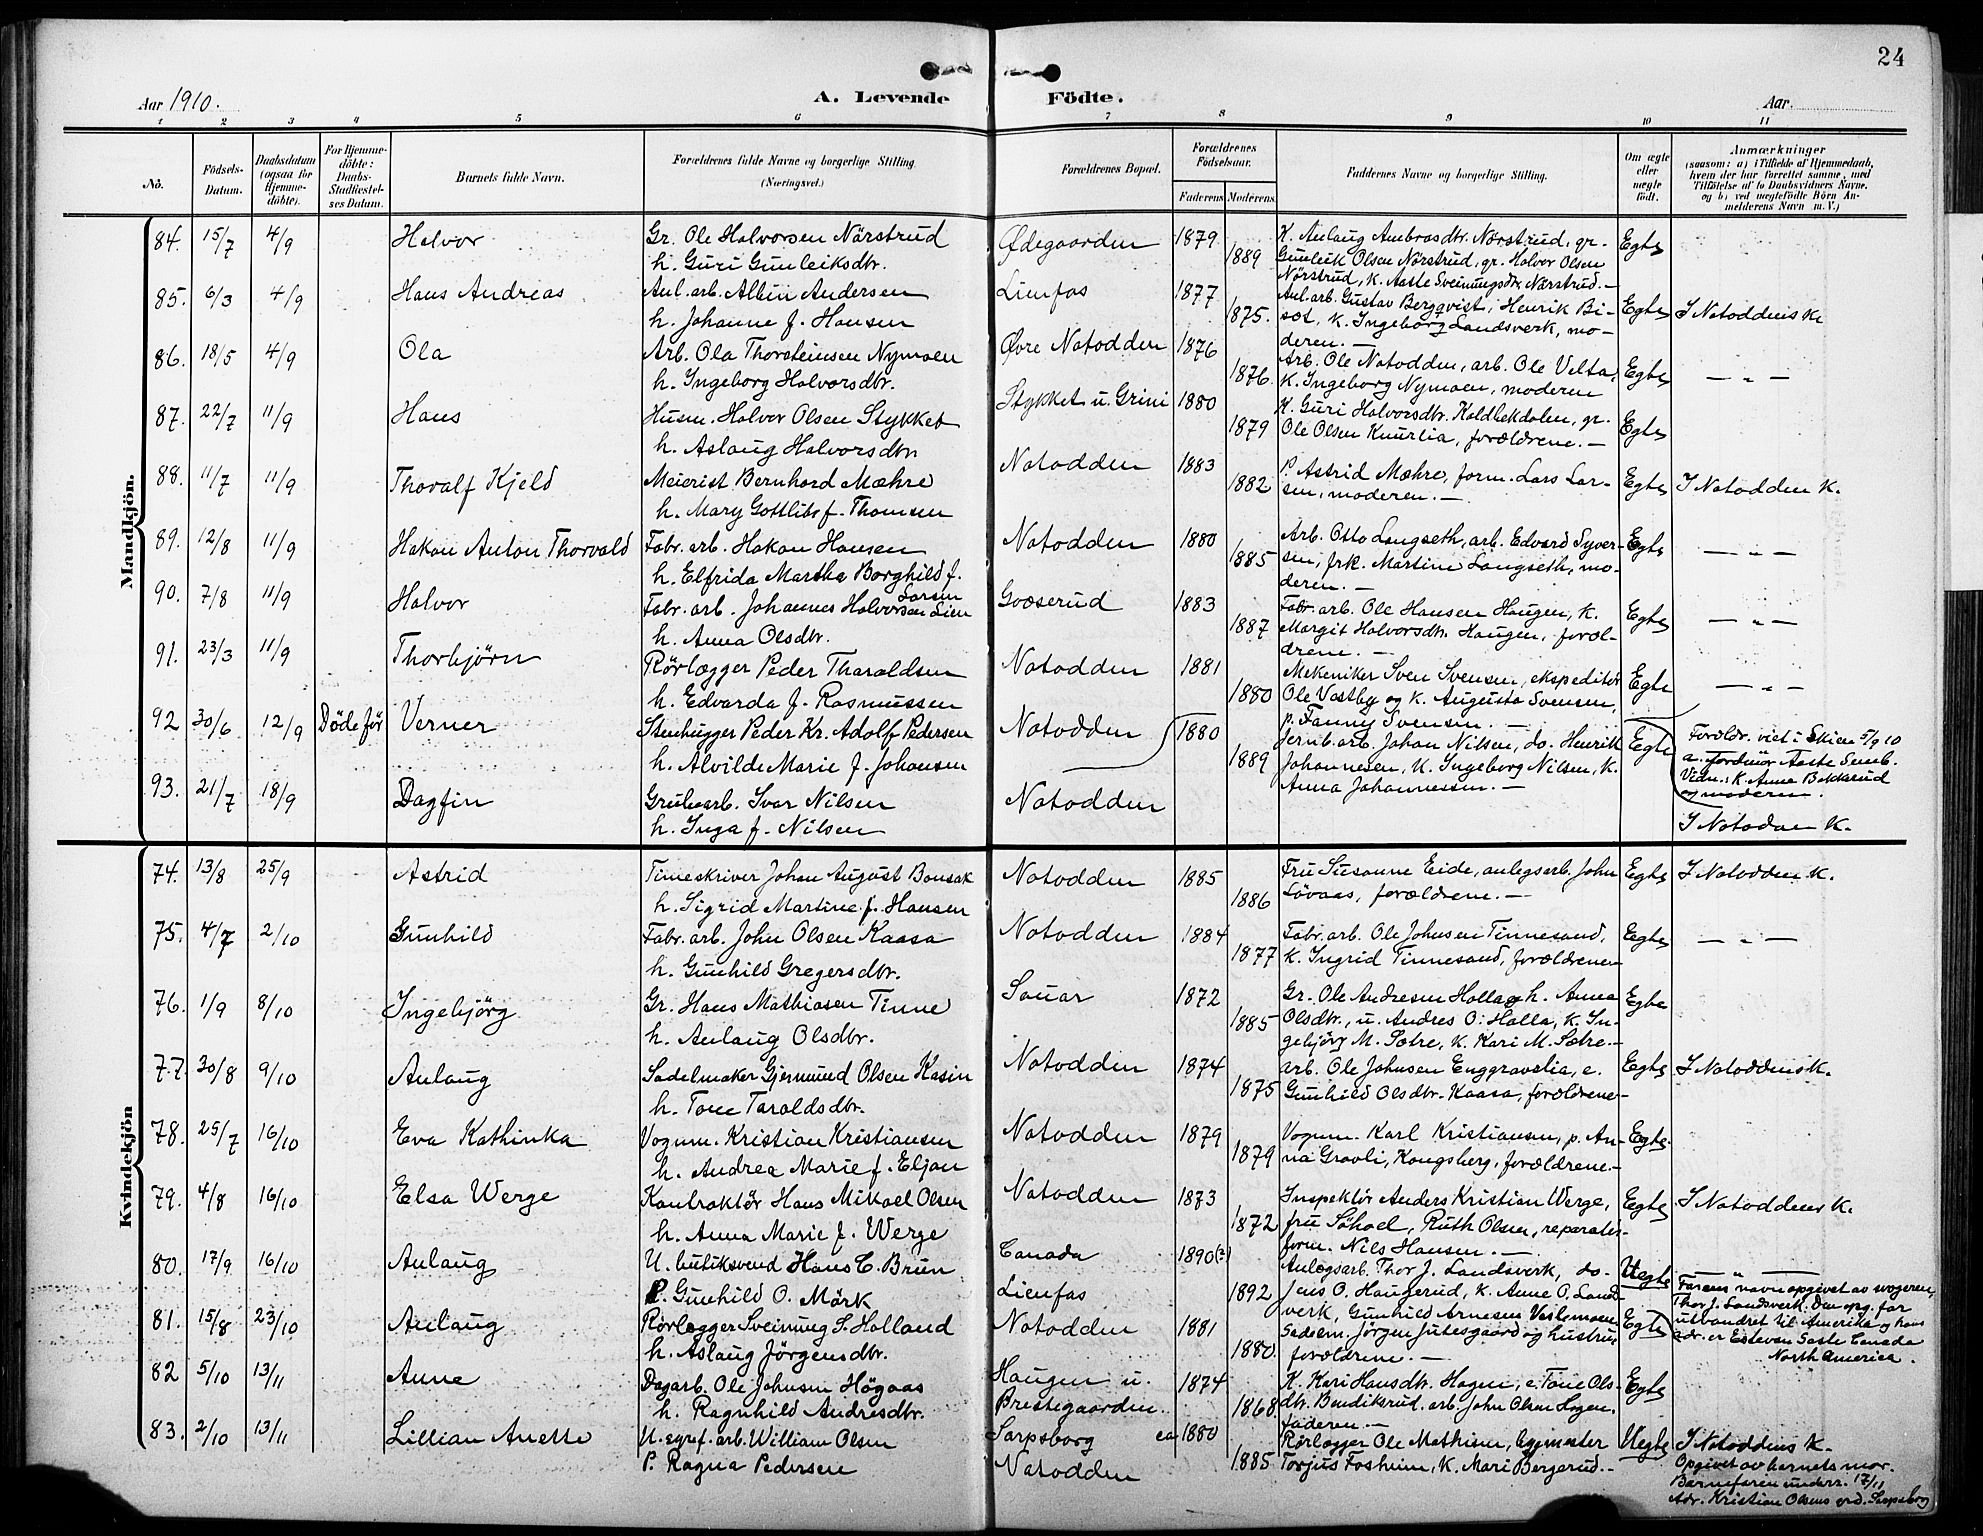 24
Aar 1910.
A. Levende Födte.
Aar.
1 2 3 4 5 6 7 8 9 10 11
No.
Födsels-Datum.
Daabsdatum (ogsaa for Hjemme-döbte).
For Hjemme-döbte: Daabs-Stadfæstel-ses Datum.
Barnets fulde Navn.
Forældrenes fulde Navne og borgerlige Stilling. (Næringsvei.)
Forældrenes Bopæl.
Forældrenes Födselsaar.
Faderens Moderens
Faddernes Navne og borgerlige Stilling.
Om ægte eller uægte födt.
Anmærkninger
(saasom: a) i Tilfælde af Hjemmedaab, hvem der har forrettet samme, med Tilföielse af to Daabsvidners Navne, og b) ved uægtefödte Börn An-melderens Navn m. V.)
Mandkjön.
84. 15/7 4/9 Halvor Gr. Ole Halvorsen Nörstrud Ødegaarden 1879 K. Anlaug Ambrosdtr. Nörstrud, gr. Egte
h. Guri Gunleiksdtr. 1889 Gunleik Olsen Nörstrud, gr. Halvor Olsen
Nörstrud, K. Aaste Sveinungsdtr. Nörstrud.—
85. 6/3 4/9 Hans Andreas Anl. arb. Albin Andersen Lienfos 1877 Anl. arb. Gustav Bergqvist, Henrik Bi- Egte I Notoddens K.
h. Johanne f. Hansen 1875. sot, K. Ingeborg Landsverk, mo-
deren.—
86. 18/5 4/9 Ola Arb. Ola Thorsteinsen Nymoen Øvre Notodden 1876 Arb. Ole Notodden, arb. Ole Velta, Egte — " —
h. Ingeborg Halvorsdtr. 1876. K. Ingeborg Nymoen, moderen
87. 22/7 11/9 Hans Husm. Halvor Olsen Stykket Stykket u. Grini 1880 K. Guri Halvorsdtr. Koldbekdalen, gr. Egte
h. Aslaug Halvorsdtr. 1879 Ole Olsen Knurlia, forældrene.—
88. 11/7 11/9 Thoralf Kjeld Meierist Bernhard Mæhre Notodden 1883 P. Astrid Mæhre, form. Lars Lar- Egte I Notodden K.
h. Mary Gottlibe f. Thomsen 1882 sen, moderen.—
89. 12/8 11/9 Hakon Anton Thorvald Fabr. arb. Hakon Hansen Notodden 1880 Arb. Otto Langseth, arb. Edvard Syver- Egte — " —
h. Elfrida Martha Borghild f. Larsen 1885 sen, frk. Martine Langseth, mo-
deren.—
90. 7/8 11/9 Halvor Fabr. arb. Johannes Halvorsen Lien Goaserud 1883 Fabr. arb. Ole Hansen Haugen, K. Egte — " —
h. Anna Olsdtr. 1887 Margit Halvorsdtr. Haugen, foræl-
drene.—
91. 23/3 11/9 Thorbjörn Rörlægger Peder Tharaldsen Notodden 1881 Mekeniker Sven Svensen, ekspeditör Egte — " —
h. Edvarda f. Rasmussen 1880 Ole Vestby og K. Augusta Svensen,
p. Fanny Svensen.—
92 30/6 12/9 Döde för Verner Stenhugger Peder Kr. Adolf Pedersen Notodden 1880 Jernb. arb. Johan Nilsen, do. Henrik Egte Foræld. viet i Skien 5/9 10
h. Alvilde Marie f. Johansen 1889 Johannesen, K. Ingeborg Nilsen, K. a. Jordmor Aaste Semb.
Anna Johannessen.— Vidn.: K. Anna Bekkerud
og moderen.
93. 21/7 18/9 Dagfin Grubearb. Ivar Nilsen Notodden
h. Inga f. Nilsen I Notodden K.
Kvindekjön
74. 13/8 25/9 Astrid Timeskriver Johan August Bonsak Notodden 1885 Fru Susanne Eide, anlegsarb. John Egte I Notodden K.
h. Sigrid Martine f. Hansen 1886 Lövaas, forældrene.—
75. 4/7 2/10 Gunhild Fabr. arb. John Olsen Kaasa Notodden 1884 Fabr. arb. Ole Johnsen Tinnesand, Egte — " —
h. Gunhild Gregersdtr. 1877 K. Ingrid Tinnesand, forældrene—
76. 1/9 8/10 Ingebjörg Gr. Hans Mathiasen Tinne Sauar 1872 Gr. Ole Andresen Holla, h. Anna Egte
h. Anlaug Olsdtr. 1885 Olsdtr., u. Andres O. Holla, K. In-
gebjörg M. Sætre, K. Kari M. Sætre—
77. 30/8 9/10 Anlaug Sadelmaker Gjermund Olsen Kasin Notodden 1874 arb. Ole Johnsen Enggravslia, e. Egte I Notoddens K.
h. Tone Taraldsdtr. 1875 Gunhild Olsdtr. Kaasa, forældrene—
78. 25/7 16/10 Eva Kathinka Vognm. Kristian Kristiansen Notodden 1879 Vognm. Karl Kristiansen, p. An- Egte
h. Andrea Marie f. Eljan 1879 na Gravli, Kongsberg, forældrene.—
79. 4/8 16/10 Elsa Werge Kontraktör Hans Mikael Olsen Notodden 1873 Inspektör Anders Kristian Werge, Egte I Notoddens K.
h. Anna Marie f. Werge 1872 fru Söhoel, Ruth Olsen, reparatör-
form. Nils Hansen.—
80. 17/9 16/10 Anlaug U. butiksvend Hans C. Brun Canada 1890(?) Anlægsarb. Thor J. Landsverk, do. Uegte — " —
P. Gunhild O. Mörk Lienfos 1892 Jens O. Haugerud, K. Anne O. Land- Farens navn opgivet av mogeren,
verk, Gunhild Arnesen Vestemoen Thor J. Landsverk. Den opg. far
81. 15/8 23/10 Anlaug Rörlægger Sveinung S. Holland Notodden 1881 Sadelm. Jörgen Jutesgaard og hustru, Egte utvandret til Amerika og hans
h. Aslaug Jörgensdtr. 1880. forældrene.— adr. er Estevan Saste Canada
North America.
82 5/10 13/11 Anne Dagarb. Ole Johnsen Högaas Haugen u. 1874 K. Kari Hansdtr. Hagen, e. Tone Ols- Egte
h. Ragnhild Andresdtr. Brestegaarden. 1868 dtr. Bendiksrud, arb. John Olsen Hogen,
faderen.—
83. 2/10 13/11 Lillian Anette U. egref. arb. William Olsen Sarpsborg ca 1880 Rörlægger Ole Mathisen, bygmester Uegte I Notoddens K.
P. Ragna Pedersen Notodden 1885 Torjus Fosheim, K. Mari Bergerud.— Opgivet av barnets mor.
Barnefaren underr. 17/11
Adr. Kristian Olsens grd. Sarpsborg